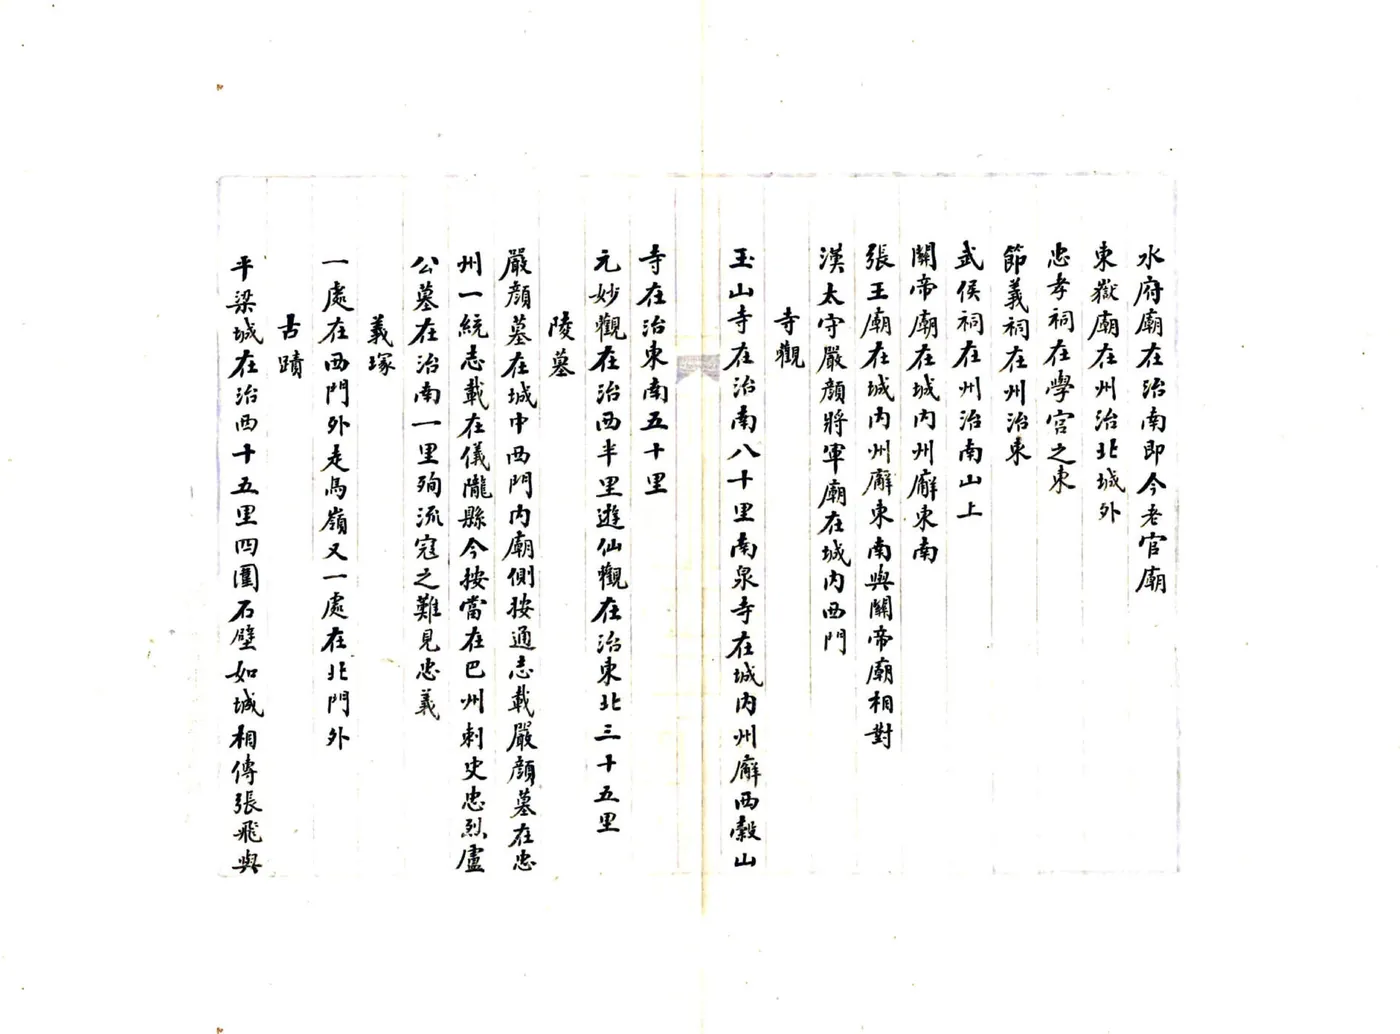 水府廟在治南即今老官廟
東嶽廟在州治北城外
忠孝祠在學宮之東
節義祠在州治東
武侯祠在州治南山上
關帝廟在城內州廨東南
張王廟在城內州廨東南與關帝廟相對
漢太守嚴顏將軍廟在城內西門
寺觀
玉山寺在治南八十里南泉寺在城內州廨西穀山
寺在治東南五十里
元妙觀在治西半里遊仙觀在治東北三十五里
陵墓
嚴顏墓在城中西門內廟側按通志載嚴顏墓在忠
州一統志載在儀隴縣今按當在巴州刺史忠烈盧
公墓在治南一里殉流寇之難見忠義
義塚
一處在西門外走馬嶺又一處在北門外
古蹟
平梁城在治西十五里四圍石壁如城相傳張飛與